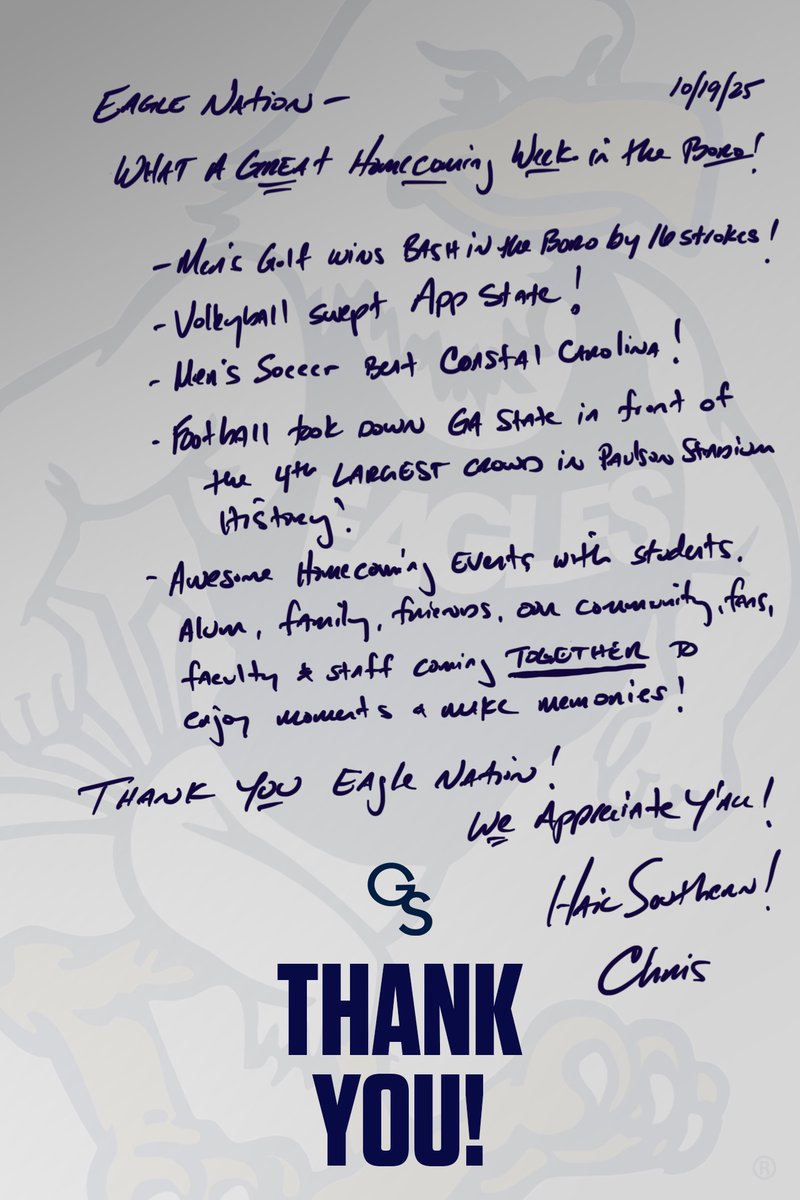 EAGLE NATION — 10/19/25
WHAT A GREAT Homecoming Week in the Boro!
- Men's Golf wins BASH in the Boro by 16 strokes!
- Volleyball swept App State!
- Men's Soccer Beat Coastal Carolina!
- Football took down GA State in front of
the 4th LARGEST crowd in Paulson Stadium
History!
- Awesome Homecoming Events with students,
Alum, family, friends, our community, fans,
faculty & staff coming TOGETHER to
enjoy moments & make memories!
THANK YOU EAGLE NATION!
We Appreciate Y'ALL!
Hail Southern!
Chris
GS
THANK
YOU!
EAGLES
®